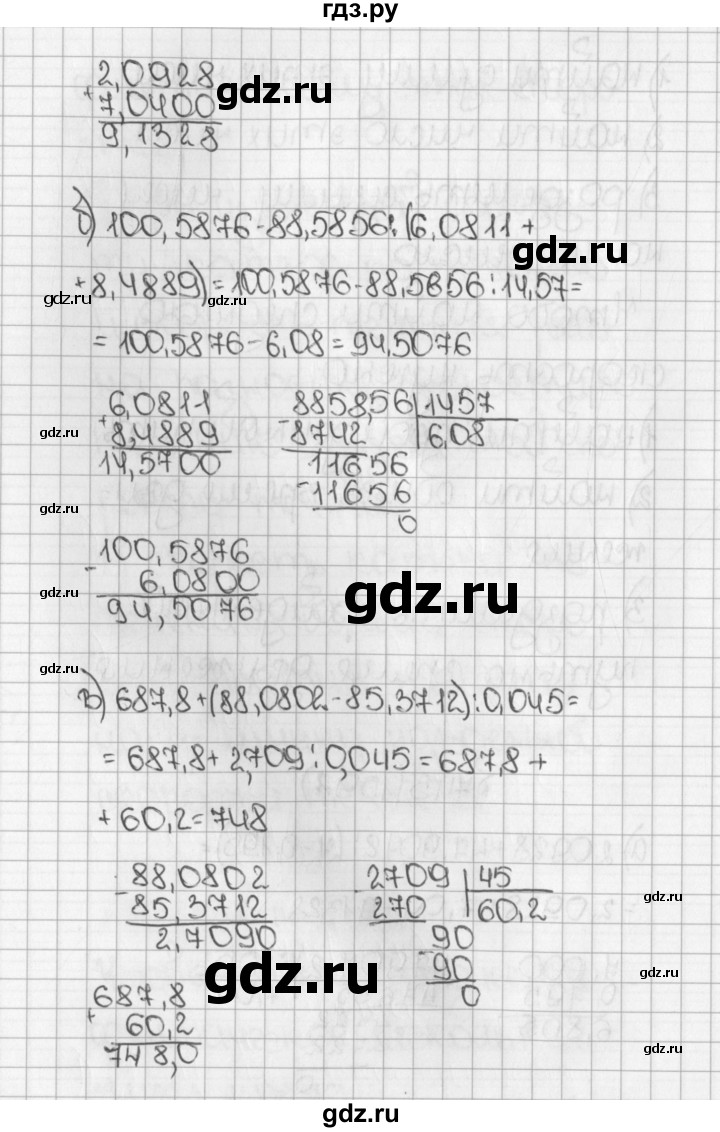 гдз.ру
2,0928
+ 7,0400
9,1328
gdz.ru
б) 100,5876-88,5856:(6,0811+
gdz.ru
+8,4889)=100,5876-88,5856:14,57=
gdz.ru
gdz.ru
=100,5876-6,08=94,5076
6,0811
+ 8,4889
14,5700
gdz.ru
8858,56 1457
- 8742 6,08
11656
- 11656
0
gdz.ru
100,5876
- 6,0800
94,5076
gdz.ru
gdz.ru
gdz.ru
в) 687,8+(88,0802-85,3712):0,045=
=687,8+2,709:0,045=687,8+
+60,2=748
88,0802
- 85,3712
2,7090
2709 45
- 270 60,2
90
- 90
0
gdz.ru
gdz.ru
gdz.ru
687,8
+ 60,2
748,0
gdz.ru
gdz.ru